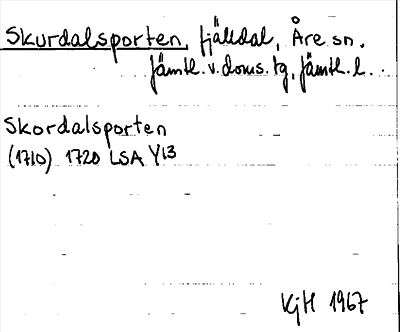 Skurdalsporten, fjälldal, Åre sn.
Jämtl. v. doms. tg, Jämtl. l.
Skordalsporten
(1710) 1720 LSA Y13
KjH 1967